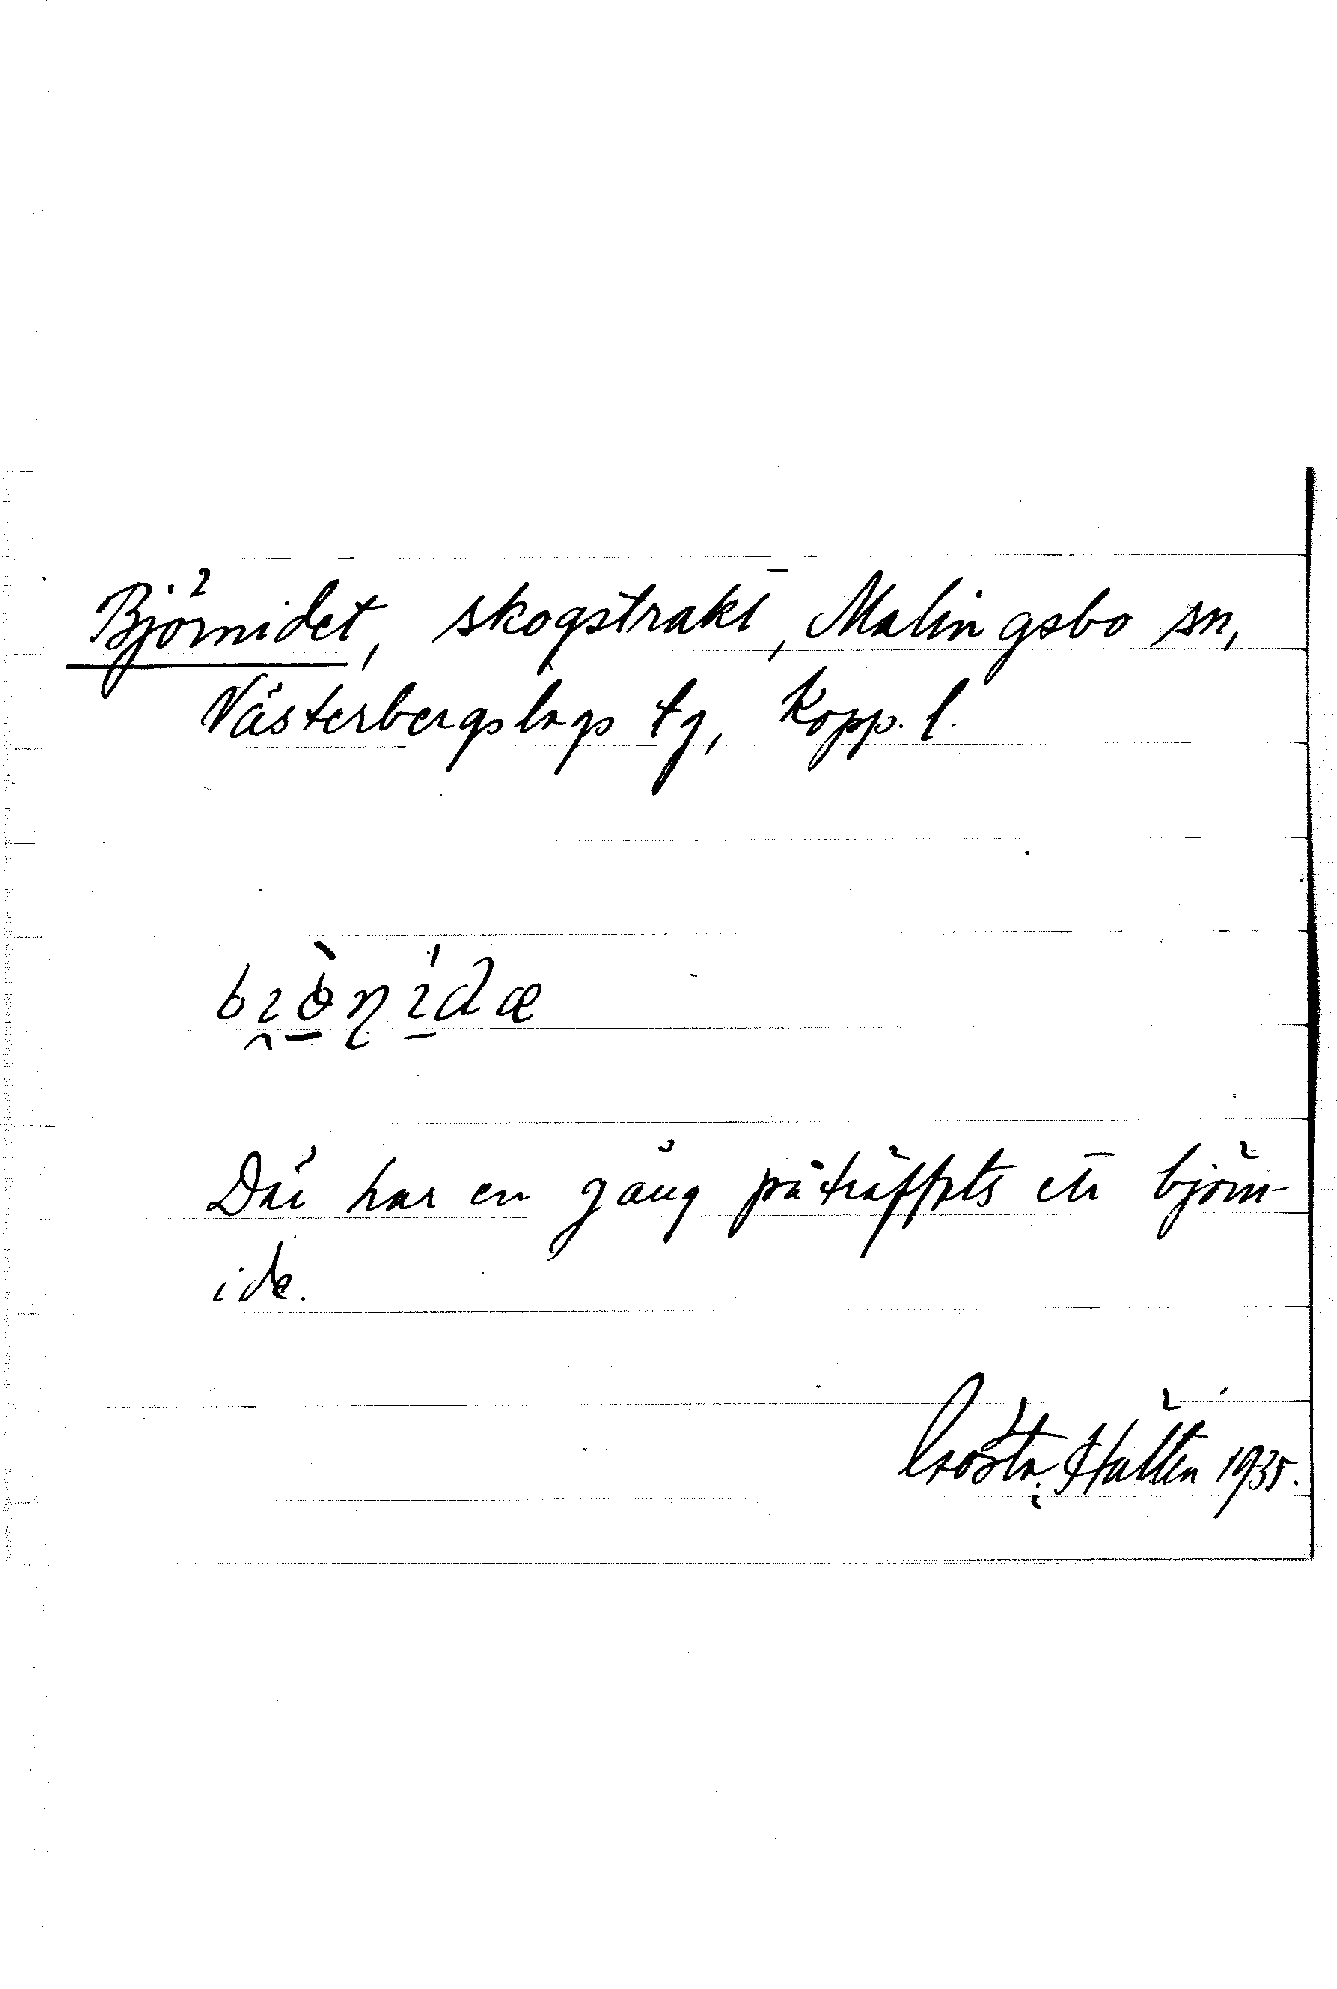 Björnidet, skogstrakt, Malingsbo sn,
Västerbergslags tg, Kopp. l.
Där har en gång påträffats ett björn-
ide.
Gösta Hallén 1935.